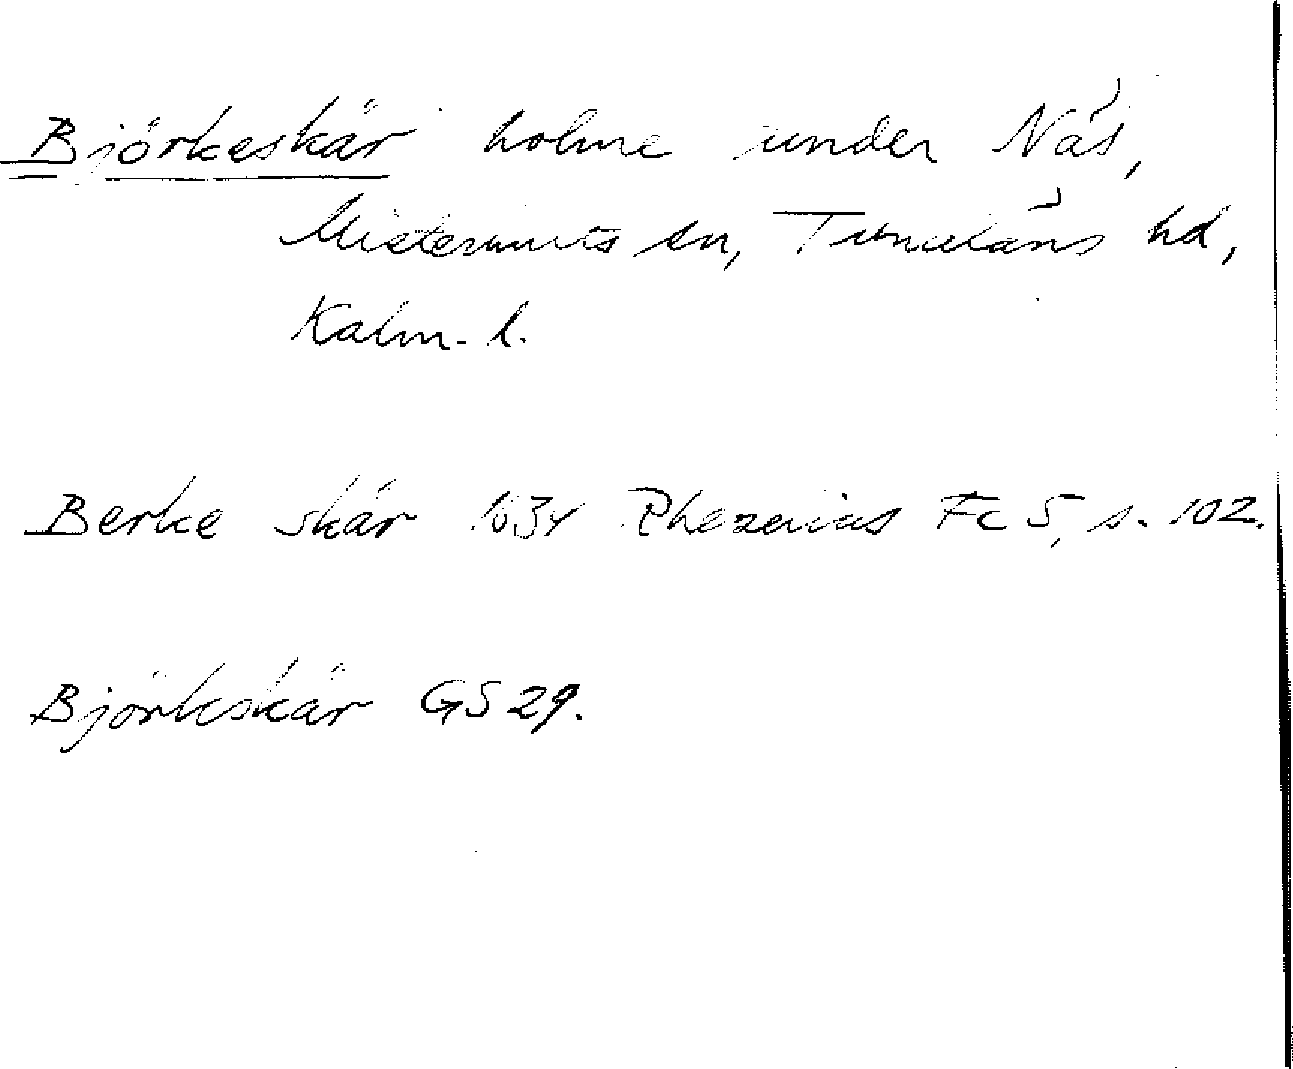 Björkeskär holme under Näs,
Misterhults sn, Tunaläns hd,
Kalm. l.
Berke skär 1634 Rhezelius Fc 5, s. 102.
Björkskär GS 29.